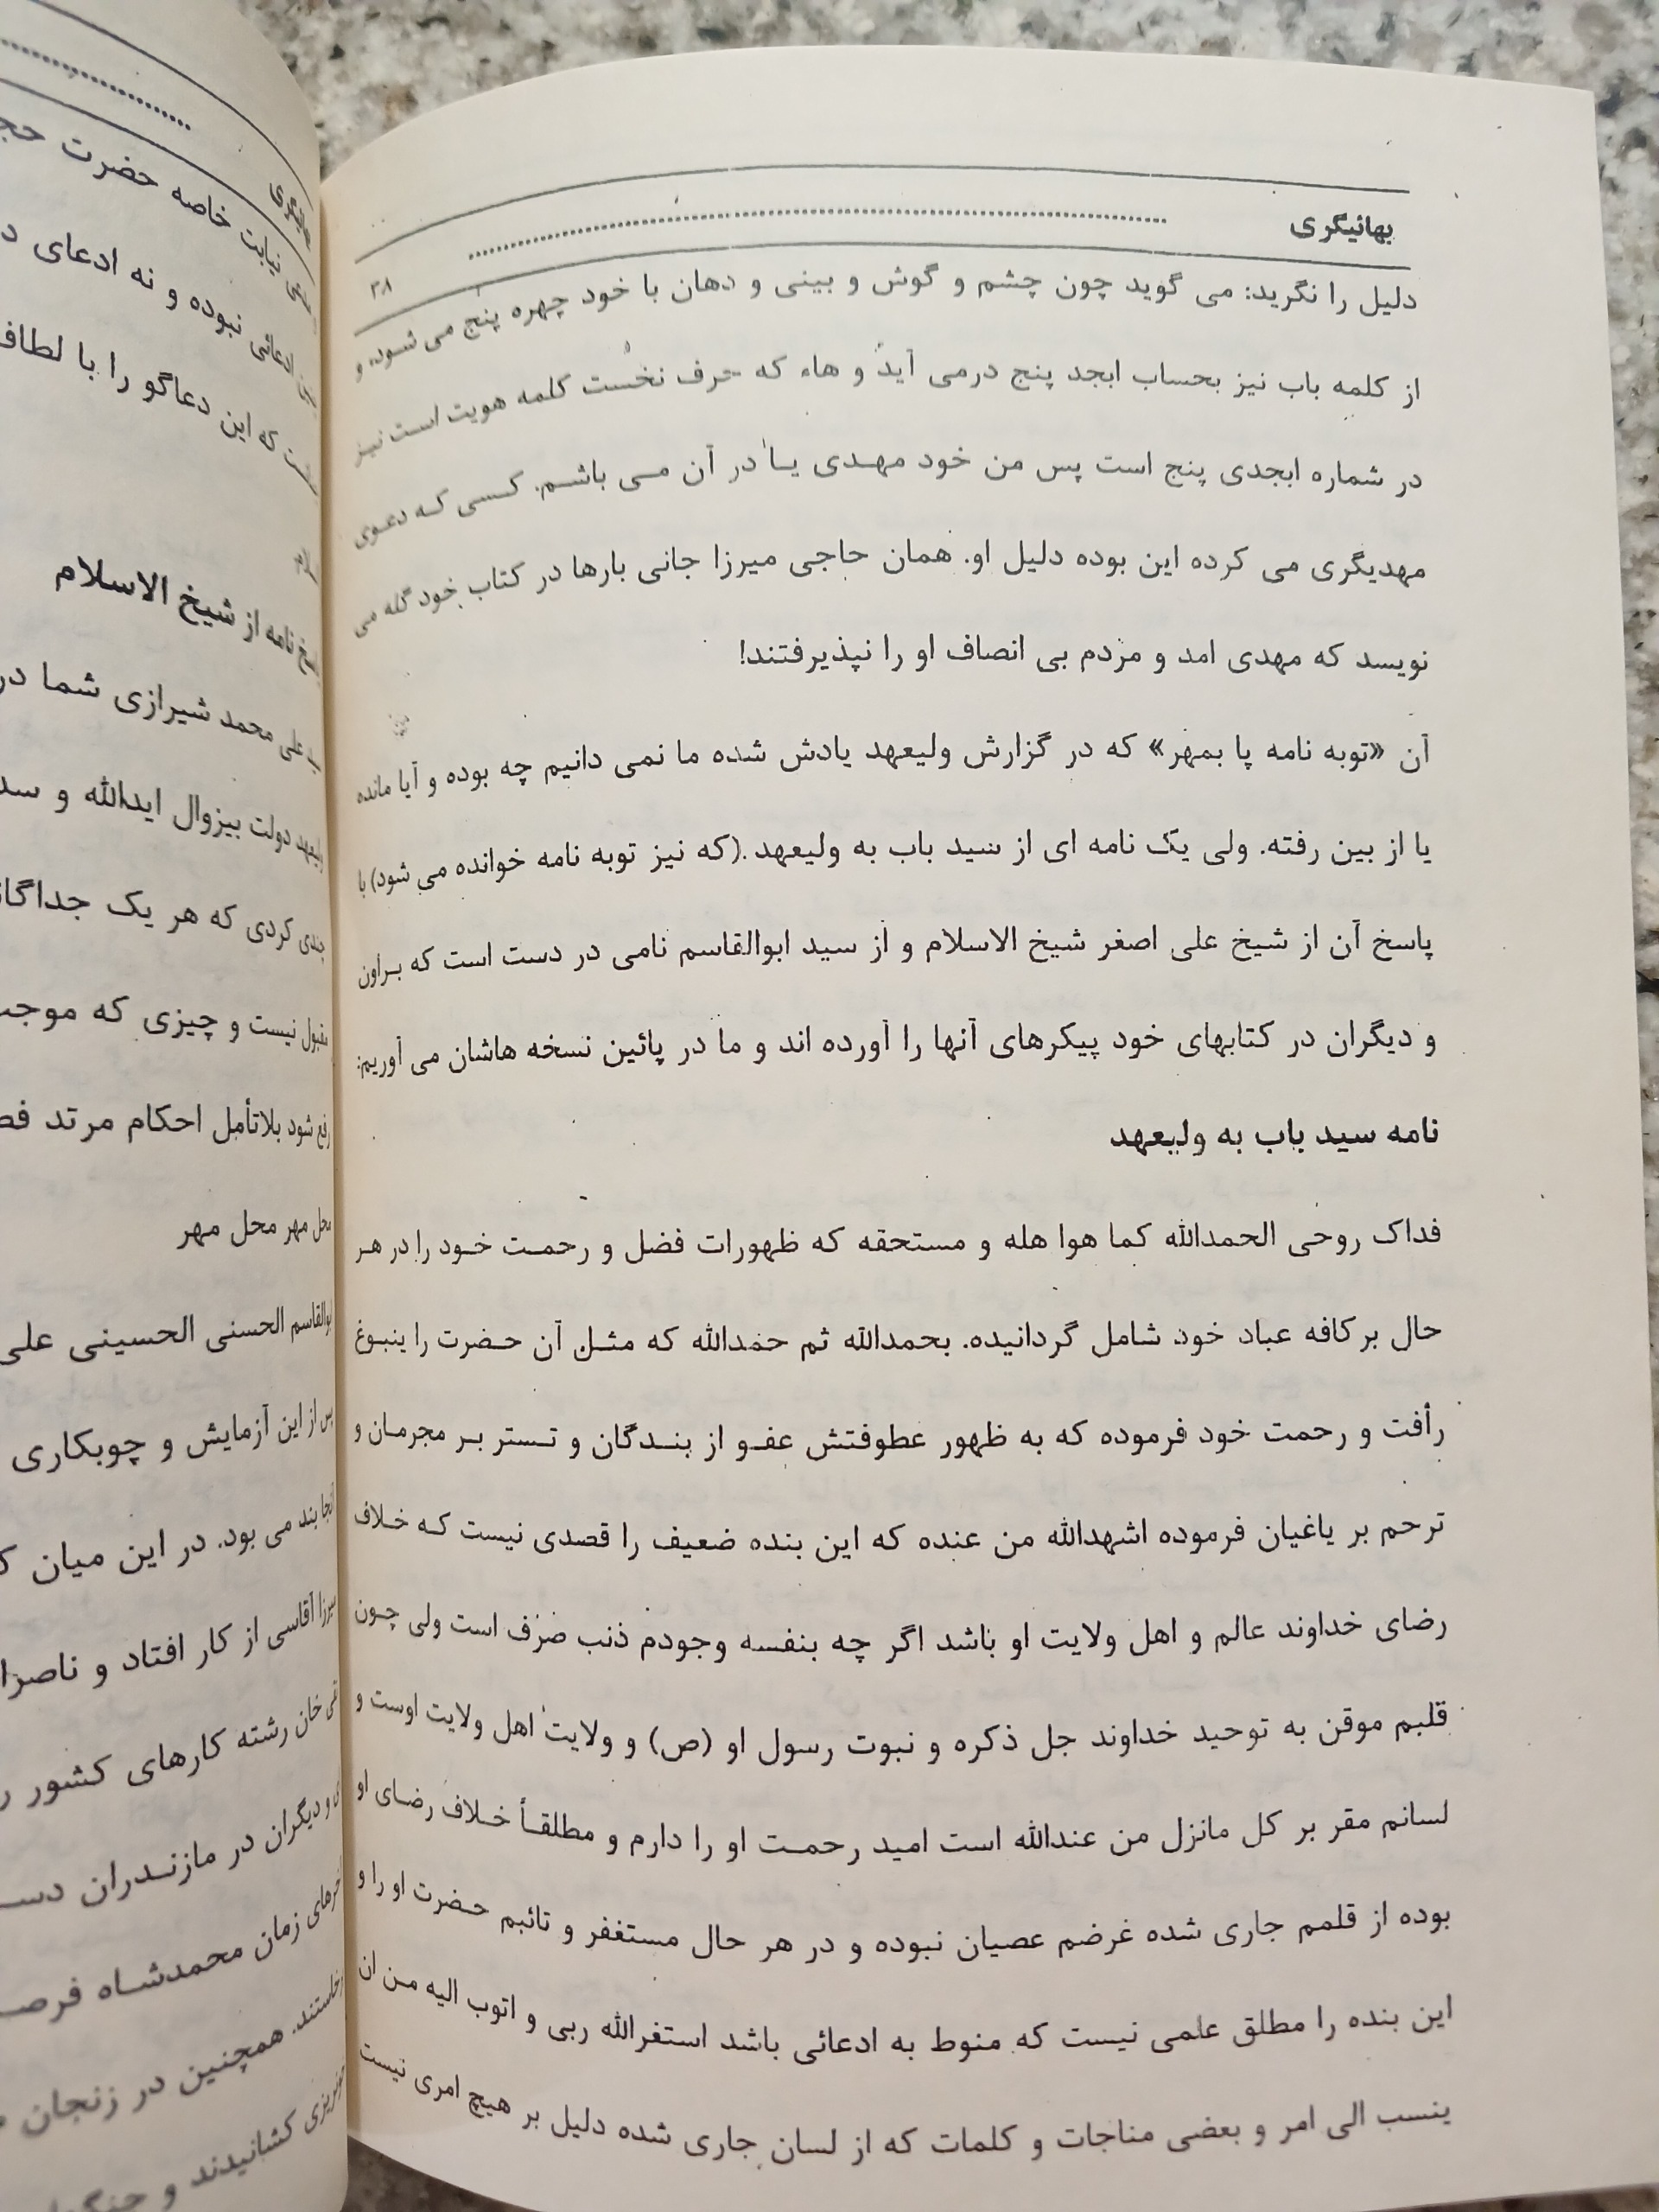 بهائیگری
۳۸
دلیل را نگرید: می گوید چون چشم و گوش و بینی و دهان با خود چهره پنج می شود، و
از کلمه باب نیز بحساب ابجد پنج درمی آید و هاء که حرف نخست کلمه هویت است نیز
در شماره ابجدی پنج است پس من خود مهدی یا در آن می باشم. کسی که دعوی
مهدیگری می کرده این بوده دلیل او. همان حاجی میرزا جانی بارها در کتاب خود گله می
نویسد که مهدی امد و مردم بی انصاف او را نپذیرفتند!
آن «توبه نامه پا بمهر» که در گزارش ولیعهد یادش شده ما نمی دانیم چه بوده و آیا مانده
یا از بین رفته. ولی یک نامه ای از سید باب به ولیعهد (که نیز توبه نامه خوانده می شود) با
پاسخ آن از شیخ علی اصغر شیخ الاسلام و از سید ابوالقاسم نامی در دست است که براون
و دیگران در کتابهای خود پیکرهای آنها را آورده اند و ما در پائین نسخه هاشان می آوریم:
نامه سید باب به ولیعهد
فداک روحی الحمدالله کما هوا هله و مستحقه که ظهورات فضل و رحمت خود را در هر
حال برکافه عباد خود شامل گردانیده. بحمدالله ثم حمدالله که مثل آن حضرت را ینبوغ
رأفت و رحمت خود فرموده که به ظهور عطوفتش عفو از بندگان و تستر بر مجرمان و
ترحم بر یاغیان فرموده اشهدالله من عنده که این بنده ضعیف را قصدی نیست که خلاف
رضای خداوند عالم و اهل ولایت او باشد اگر چه بنفسه وجودم ذنب صرف است ولی چون
قلبم موقن به توحید خداوند جل ذکره و نبوت رسول او (ص) و ولایت اهل ولایت اوست و
لسانم مقر بر کل مانزل من عندالله است امید رحمت او را دارم و مطلقاً خلاف رضای او
بوده از قلمم جاری شده غرضم عصیان نبوده و در هر حال مستغفر و تائبم حضرت او را و
این بنده را مطلق علمی نیست که منوط به ادعائی باشد استغرالله ربی و اتوب الیه من ان
ینسب الی امر و بعضی مناجات و کلمات که از لسان جاری شده دلیل بر هیچ امری نیست
نیابت خاصه حضرت
ادعائی نبوده و نه ادعای
که این دعاگو را با
نامه از شیخ الاسلام
علی محمد شیرازی شما در
دولت بیزوال ایدالله و
کردی که هر یک
مقبول نیست و چیزی که
رفع شود بلاتأمل احکام مرتد
محل مهر محل مهر
ابوالقاسم الحسنی الحسینی
پس از این آزمایش و چوبکاری
بند می بود. در این میان
میرزا آقاسی از کار افتاد و
خان رشته کارهای کشور
و دیگران در مازندران
زمان محمدشاه
همچنین در زنجان
کشانیدند و